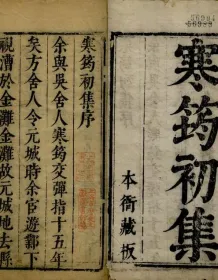 寒筠初集
本衙藏板
寒筠初集序
余與吳舍人寒筠交彈指十五年
矣方舍人令元城時余官遊鄴下
視漕於金灘金灘故元城地去縣